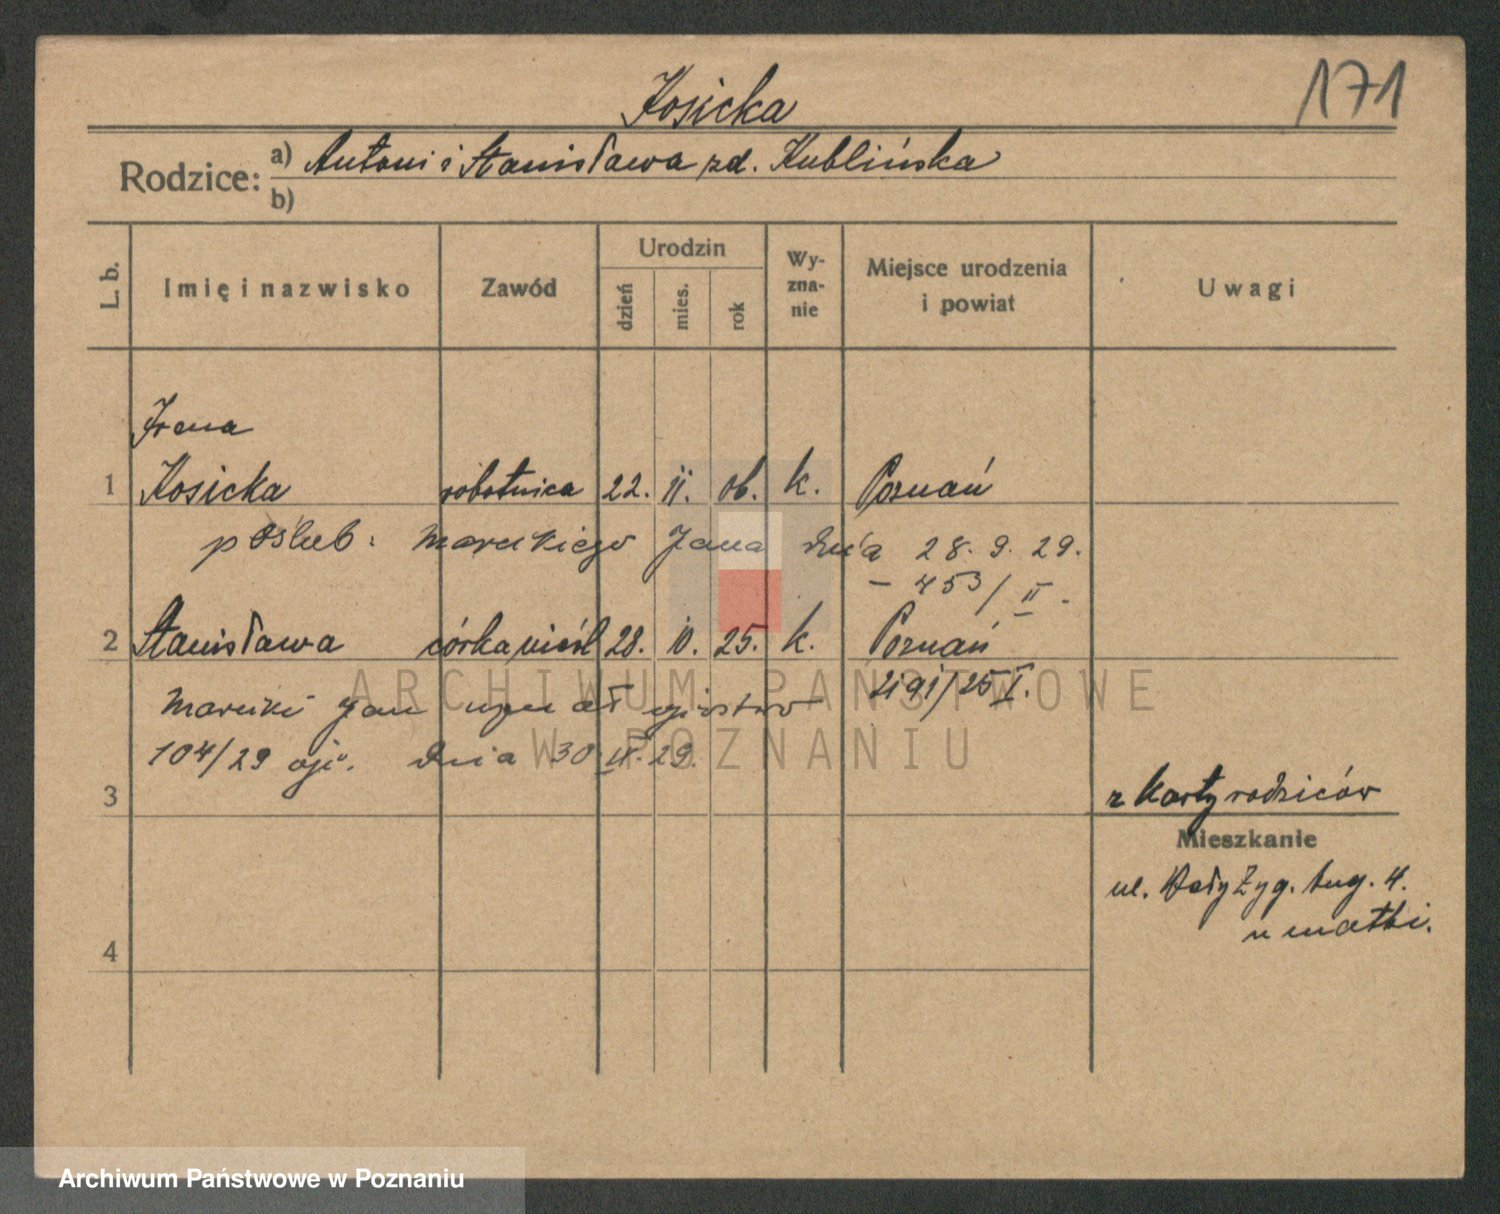 171
Kosicka
Rodzice: a) Antoni i Stanisława zd. Kublińska
b)
L. b. Imię i nazwisko Zawód Urodzin dzień mies. rok Wy-zna-nie Miejsce urodzenia i powiat Uwagi
Irena
1 Kosicka robotnica 22. II. 06. k. Poznań
poślub: Jana dnia 28. 9. 29.
– 453/II –
2 Stanisława córka nieśl 28. 10. 25. k. Poznań
2191/25 I.
Jan uznał ojcostwo
104/29 ojc. dnia 30 29.
3 z karty rodziców
Mieszkanie
ul. Wały Zyg. Aug. 4.
u matki.
4
ARCHIWUM PAŃSTWOWE
W POZNANIU
Archiwum Państwowe w Poznaniu